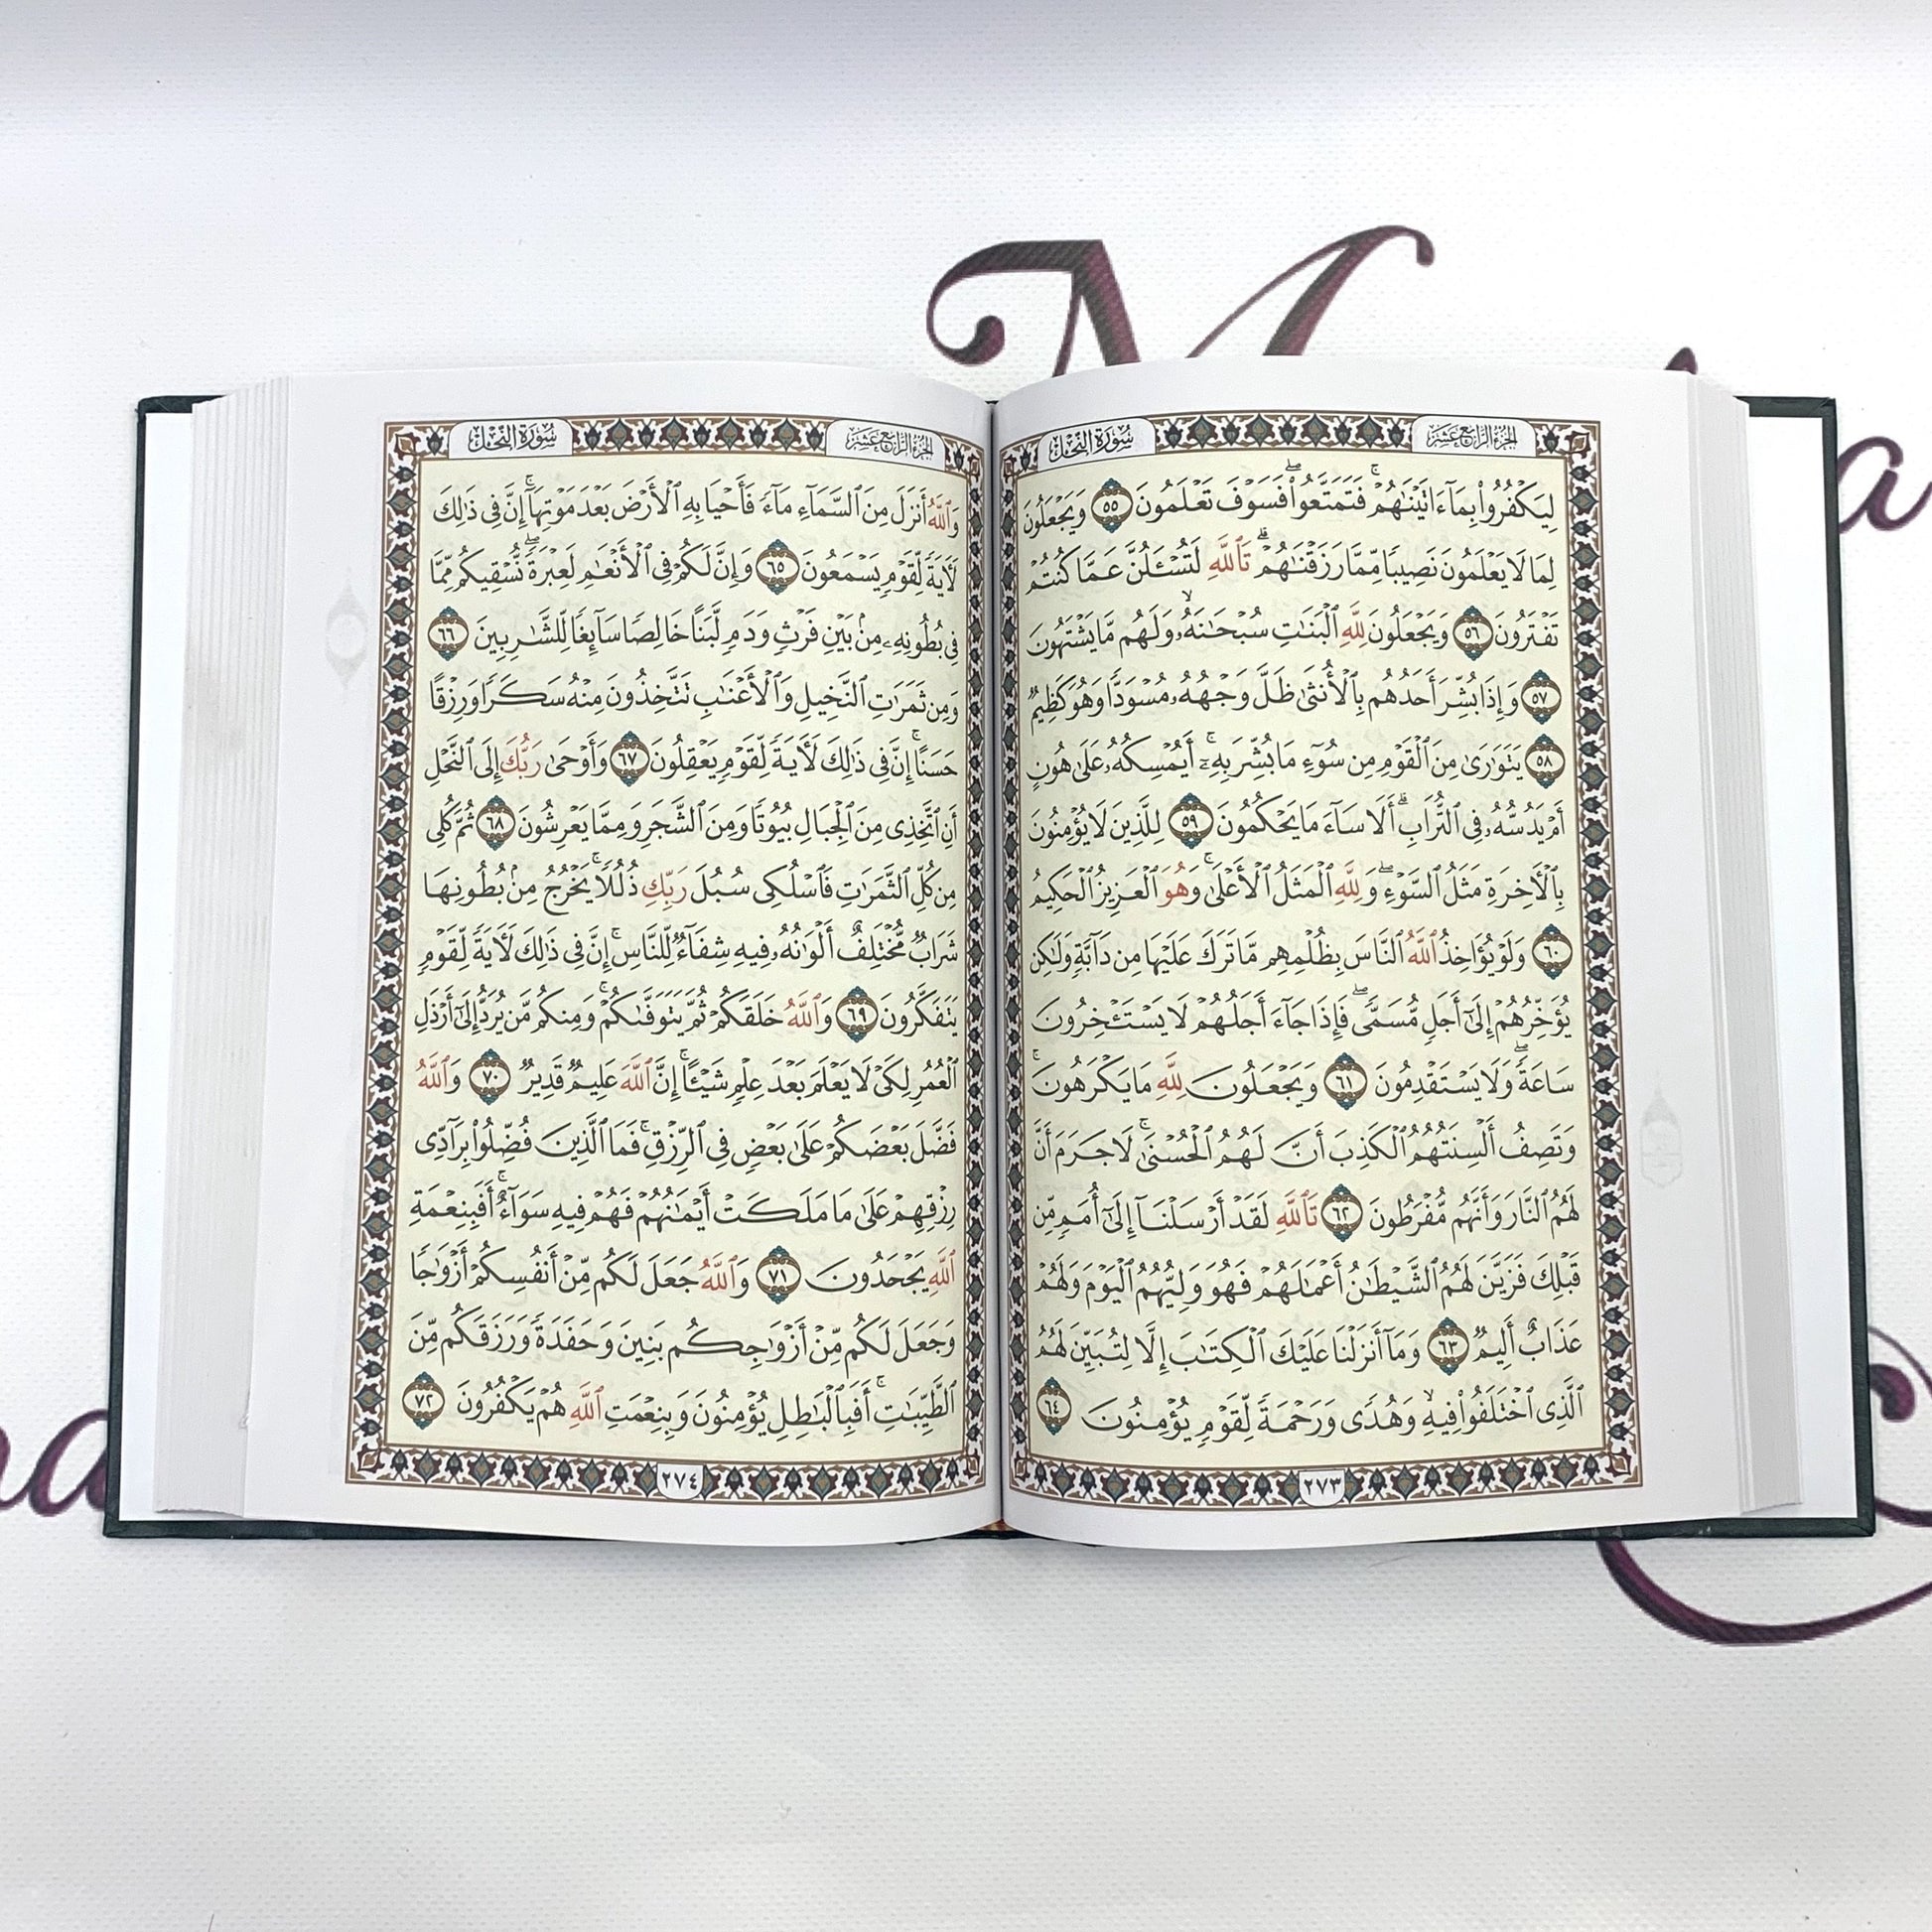 الجزء الرابع عشر
سورة النحل
لِيَكْفُرُوا۟ بِمَآ ءَاتَيْنَٰهُمْ ۚ فَتَمَتَّعُوا۟ ۖ فَسَوْفَ تَعْلَمُونَ ٥٥ وَيَجْعَلُونَ
لِمَا لَا يَعْلَمُونَ نَصِيبًا مِّمَّا رَزَقْنَٰهُمْ ۗ تَٱللَّهِ لَتُسْـَٔلُنَّ عَمَّا كُنتُمْ
تَفْتَرُونَ ٥٦ وَيَجْعَلُونَ لِلَّهِ ٱلْبَنَٰتِ سُبْحَٰنَهُۥ ۙ وَلَهُم مَّا يَشْتَهُونَ
٥٧ وَإِذَا بُشِّرَ أَحَدُهُم بِٱلْأُنثَىٰ ظَلَّ وَجْهُهُۥ مُسْوَدًّا وَهُوَ كَظِيمٌ
٥٨ يَتَوَٰرَىٰ مِنَ ٱلْقَوْمِ مِن سُوٓءِ مَا بُشِّرَ بِهِۦٓ ۚ أَيُمْسِكُهُۥ عَلَىٰ هُونٍ
أَمْ يَدُسُّهُۥ فِى ٱلتُّرَابِ ۗ أَلَا سَآءَ مَا يَحْكُمُونَ ٥٩ لِلَّذِينَ لَا يُؤْمِنُونَ
بِٱلْـَٔاخِرَةِ مَثَلُ ٱلسَّوْءِ ۖ وَلِلَّهِ ٱلْمَثَلُ ٱلْأَعْلَىٰ ۚ وَهُوَ ٱلْعَزِيزُ ٱلْحَكِيمُ
٦٠ وَلَوْ يُؤَاخِذُ ٱللَّهُ ٱلنَّاسَ بِظُلْمِهِم مَّا تَرَكَ عَلَيْهَا مِن دَآبَّةٍ وَلَٰكِن
يُؤَخِّرُهُمْ إِلَىٰٓ أَجَلٍ مُّسَمًّى ۖ فَإِذَا جَآءَ أَجَلُهُمْ لَا يَسْتَـْٔخِرُونَ
سَاعَةً ۖ وَلَا يَسْتَقْدِمُونَ ٦١ وَيَجْعَلُونَ لِلَّهِ مَا يَكْرَهُونَ ۚ
وَتَصِفُ أَلْسِنَتُهُمُ ٱلْكَذِبَ أَنَّ لَهُمُ ٱلْحُسْنَىٰ ۚ لَا جَرَمَ أَنَّ
لَهُمُ ٱلنَّارَ وَأَنَّهُم مُّفْرَطُونَ ٦٢ تَٱللَّهِ لَقَدْ أَرْسَلْنَآ إِلَىٰٓ أُمَمٍ مِّن
قَبْلِكَ فَزَيَّنَ لَهُمُ ٱلشَّيْطَٰنُ أَعْمَٰلَهُمْ فَهُوَ وَلِيُّهُمُ ٱلْيَوْمَ وَلَهُمْ
عَذَابٌ أَلِيمٌ ٦٣ وَمَآ أَنزَلْنَا عَلَيْكَ ٱلْكِتَٰبَ إِلَّا لِتُبَيِّنَ لَهُمُ
ٱلَّذِى ٱخْتَلَفُوا۟ فِيهِ ۙ وَهُدًى وَرَحْمَةً لِّقَوْمٍ يُؤْمِنُونَ ٦٤
٢٧٣
الجزء الرابع عشر
سورة النحل
وَٱللَّهُ أَنزَلَ مِنَ ٱلسَّمَآءِ مَآءً فَأَحْيَا بِهِ ٱلْأَرْضَ بَعْدَ مَوْتِهَآ ۚ إِنَّ فِى ذَٰلِكَ
لَـَٔايَةً لِّقَوْمٍ يَسْمَعُونَ ٦٥ وَإِنَّ لَكُمْ فِى ٱلْأَنْعَٰمِ لَعِبْرَةً ۖ نُّسْقِيكُم مِّمَّا
فِى بُطُونِهِۦ مِنۢ بَيْنِ فَرْثٍ وَدَمٍ لَّبَنًا خَالِصًا سَآئِغًا لِّلشَّٰرِبِينَ ٦٦
وَمِن ثَمَرَٰتِ ٱلنَّخِيلِ وَٱلْأَعْنَٰبِ تَتَّخِذُونَ مِنْهُ سَكَرًا وَرِزْقًا
حَسَنًا ۗ إِنَّ فِى ذَٰلِكَ لَـَٔايَةً لِّقَوْمٍ يَعْقِلُونَ ٦٧ وَأَوْحَىٰ رَبُّكَ إِلَى ٱلنَّحْلِ
أَنِ ٱتَّخِذِى مِنَ ٱلْجِبَالِ بُيُوتًا وَمِنَ ٱلشَّجَرِ وَمِمَّا يَعْرِشُونَ ٦٨ ثُمَّ كُلِى
مِن كُلِّ ٱلثَّمَرَٰتِ فَٱسْلُكِى سُبُلَ رَبِّكِ ذُلُلًا ۚ يَخْرُجُ مِنۢ بُطُونِهَا
شَرَابٌ مُّخْتَلِفٌ أَلْوَٰنُهُۥ فِيهِ شِفَآءٌ لِّلنَّاسِ ۗ إِنَّ فِى ذَٰلِكَ لَـَٔايَةً لِّقَوْمٍ
يَتَفَكَّرُونَ ٦٩ وَٱللَّهُ خَلَقَكُمْ ثُمَّ يَتَوَفَّىٰكُمْ ۚ وَمِنكُم مَّن يُرَدُّ إِلَىٰٓ أَرْذَلِ
ٱلْعُمُرِ لِكَىْ لَا يَعْلَمَ بَعْدَ عِلْمٍ شَيْـًٔا ۚ إِنَّ ٱللَّهَ عَلِيمٌ قَدِيرٌ ٧٠ وَٱللَّهُ
فَضَّلَ بَعْضَكُمْ عَلَىٰ بَعْضٍ فِى ٱلرِّزْقِ ۚ فَمَا ٱلَّذِينَ فُضِّلُوا۟ بِرَآدِّى
رِزْقِهِمْ عَلَىٰ مَا مَلَكَتْ أَيْمَٰنُهُمْ فَهُمْ فِيهِ سَوَآءٌ ۚ أَفَبِنِعْمَةِ
ٱللَّهِ يَجْحَدُونَ ٧١ وَٱللَّهُ جَعَلَ لَكُم مِّنْ أَنفُسِكُمْ أَزْوَٰجًا
وَجَعَلَ لَكُم مِّنْ أَزْوَٰجِكُم بَنِينَ وَحَفَدَةً وَرَزَقَكُم مِّنَ
ٱلطَّيِّبَٰتِ ۚ أَفَبِٱلْبَٰطِلِ يُؤْمِنُونَ وَبِنِعْمَتِ ٱللَّهِ هُمْ يَكْفُرُونَ ٧٢
٢٧٤